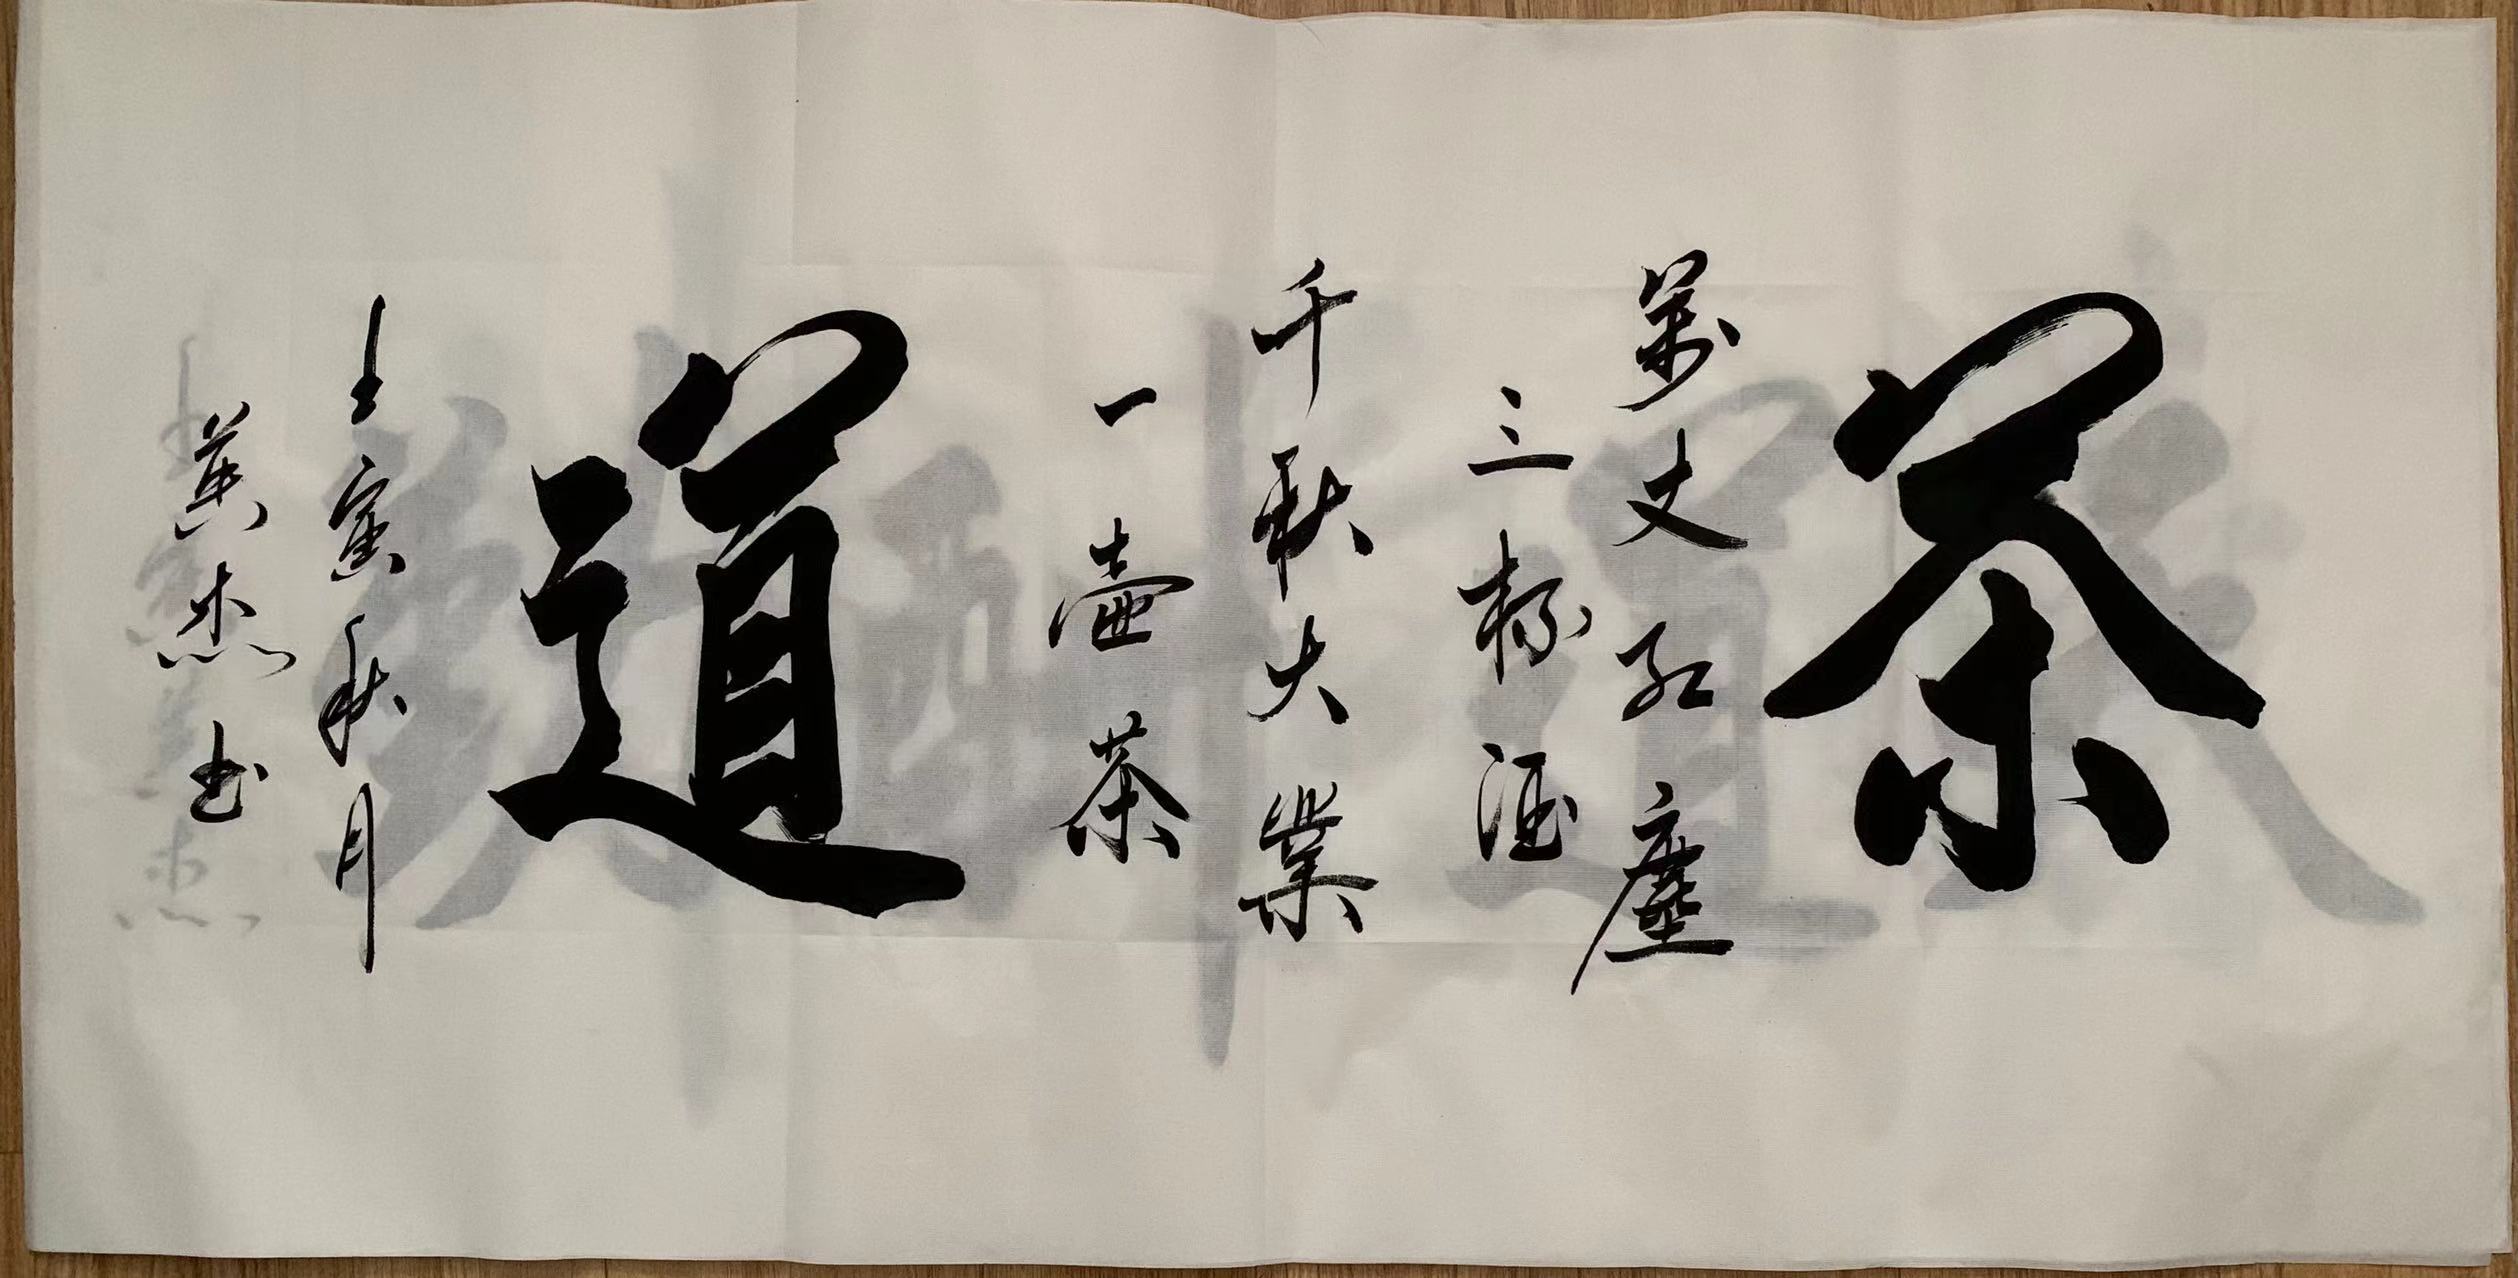 茶
萬丈紅塵
三杯酒
千秋大業
一壺茶
道
壬寅秋月
英杰书